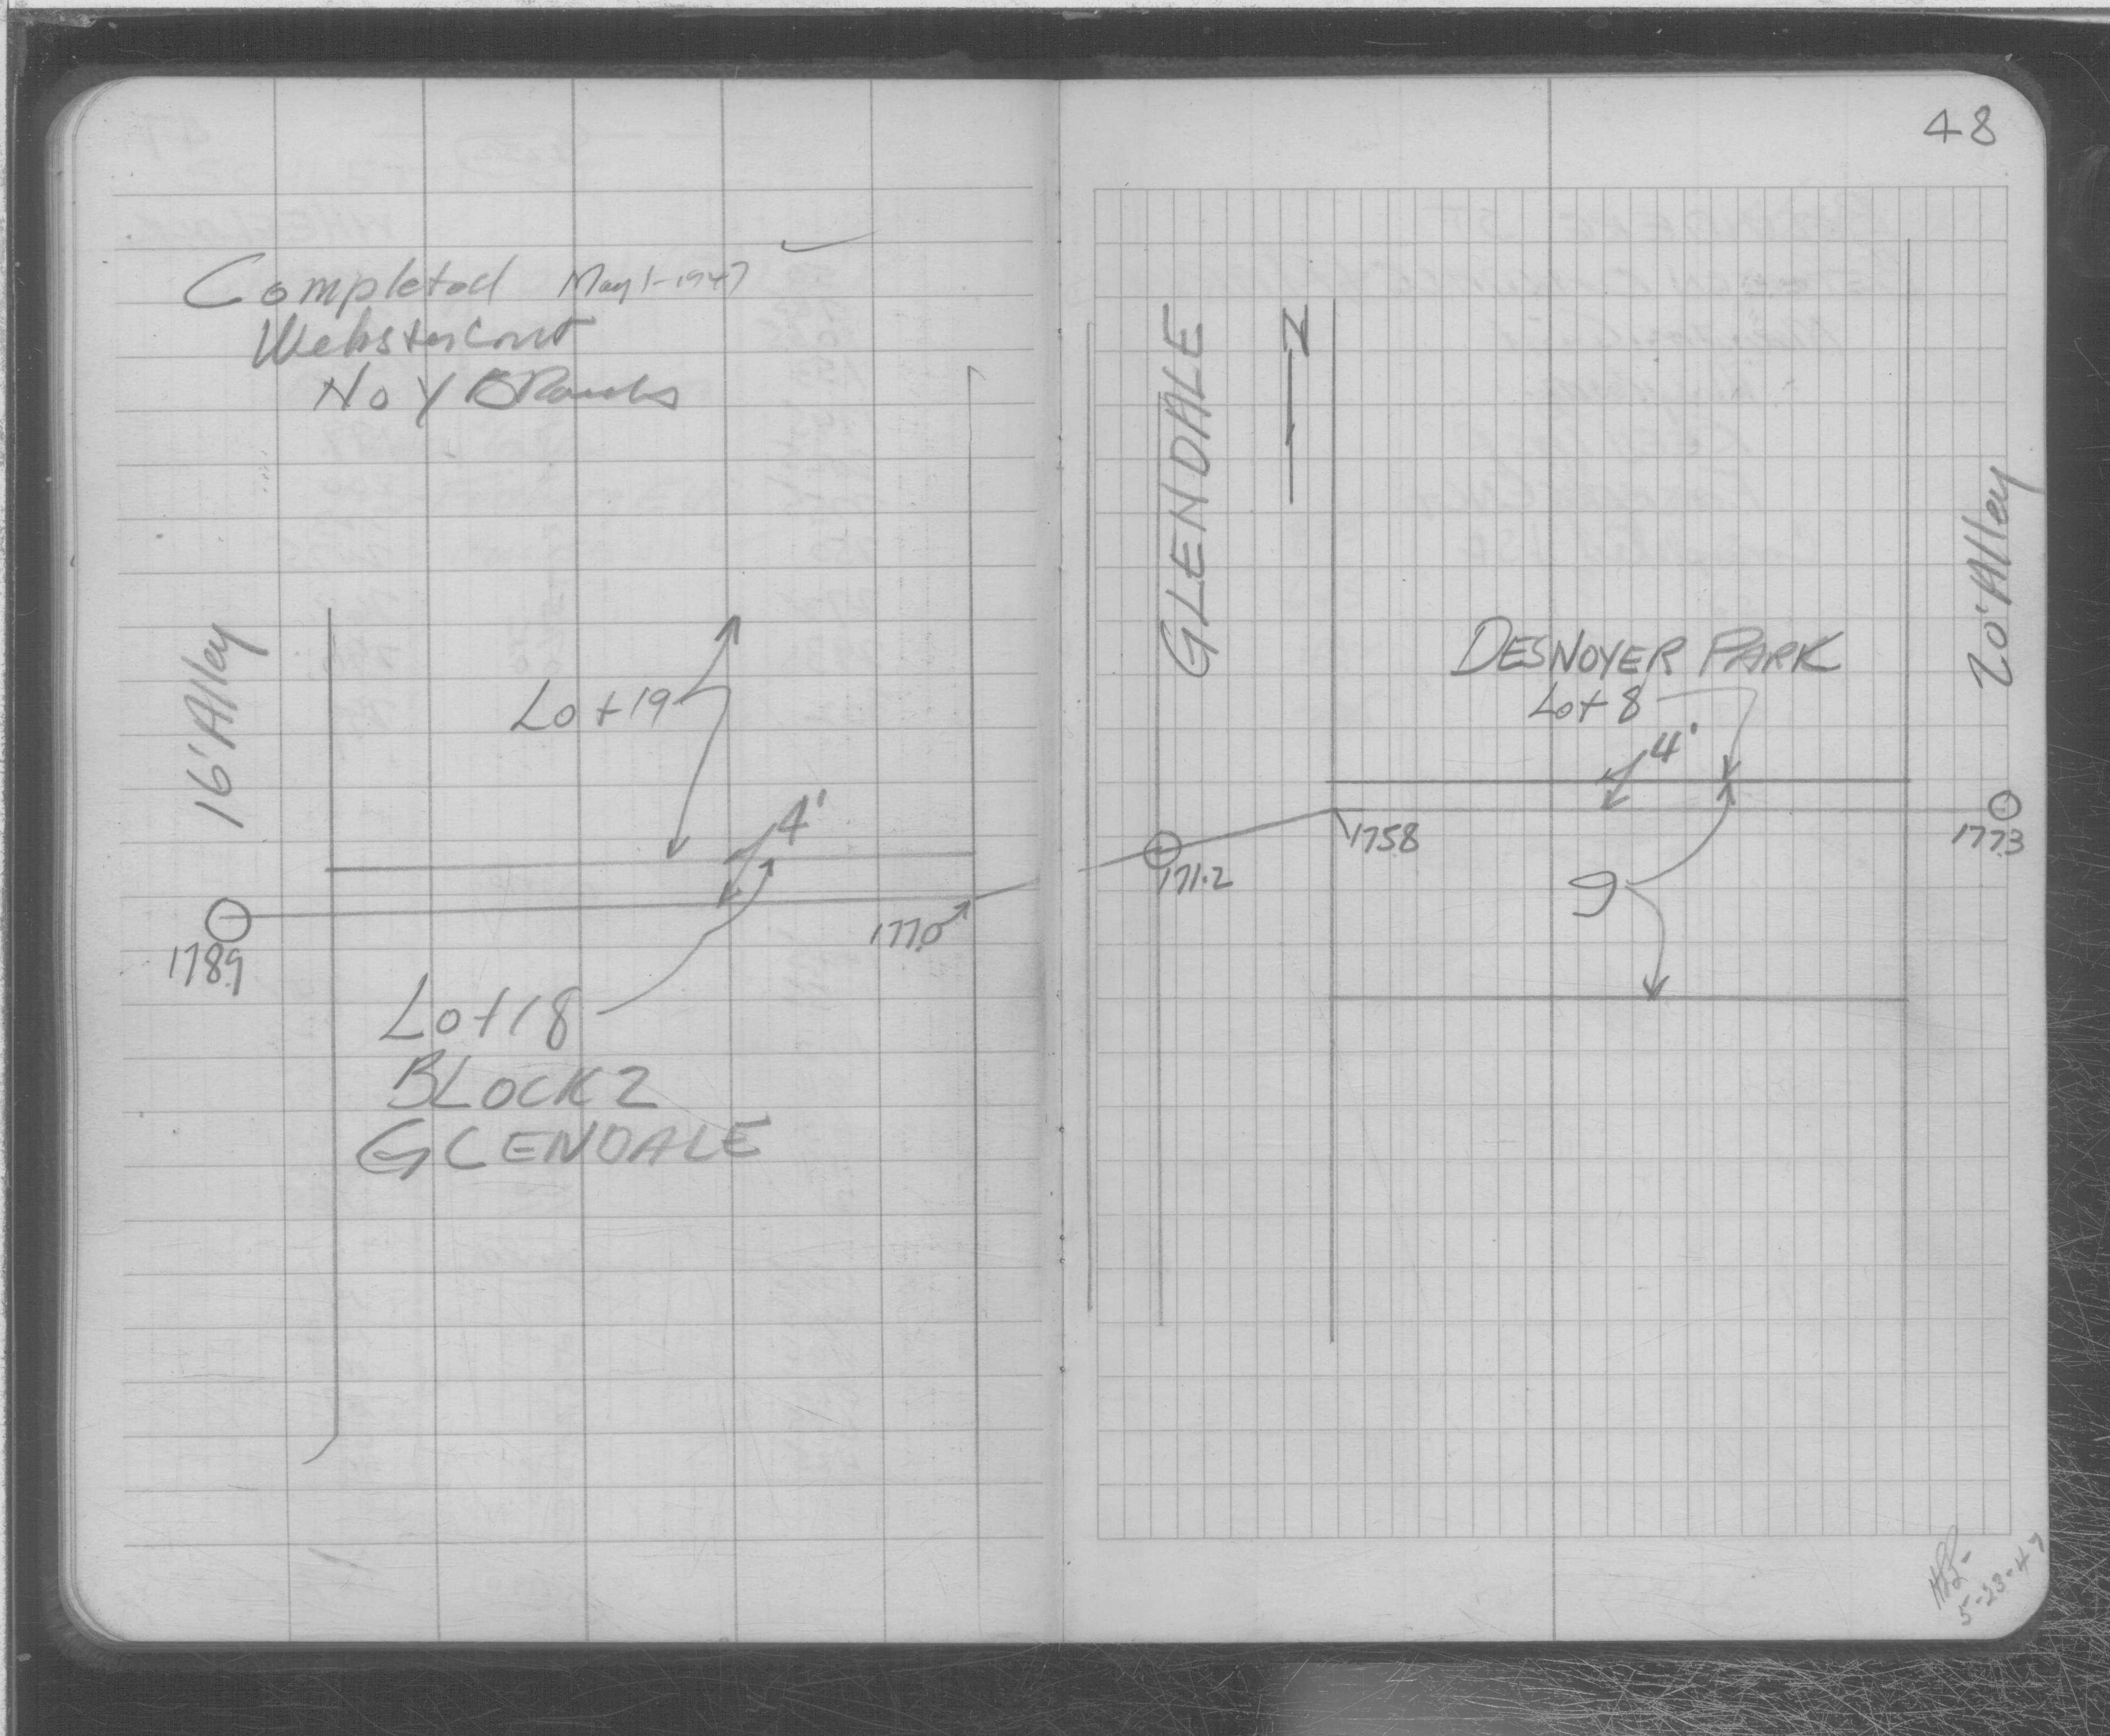 48
Completed May 1-1947
Webster Cont
No Y BRanchs
16' Alley
Lot 19
4'
1770
1789
Lot 18
BLOCK 2
GLENDALE
GLENDALE
N
DESNOYER PARK
Lot 8
4'
20' Alley
171.2
1758
9
1773
5-23-47